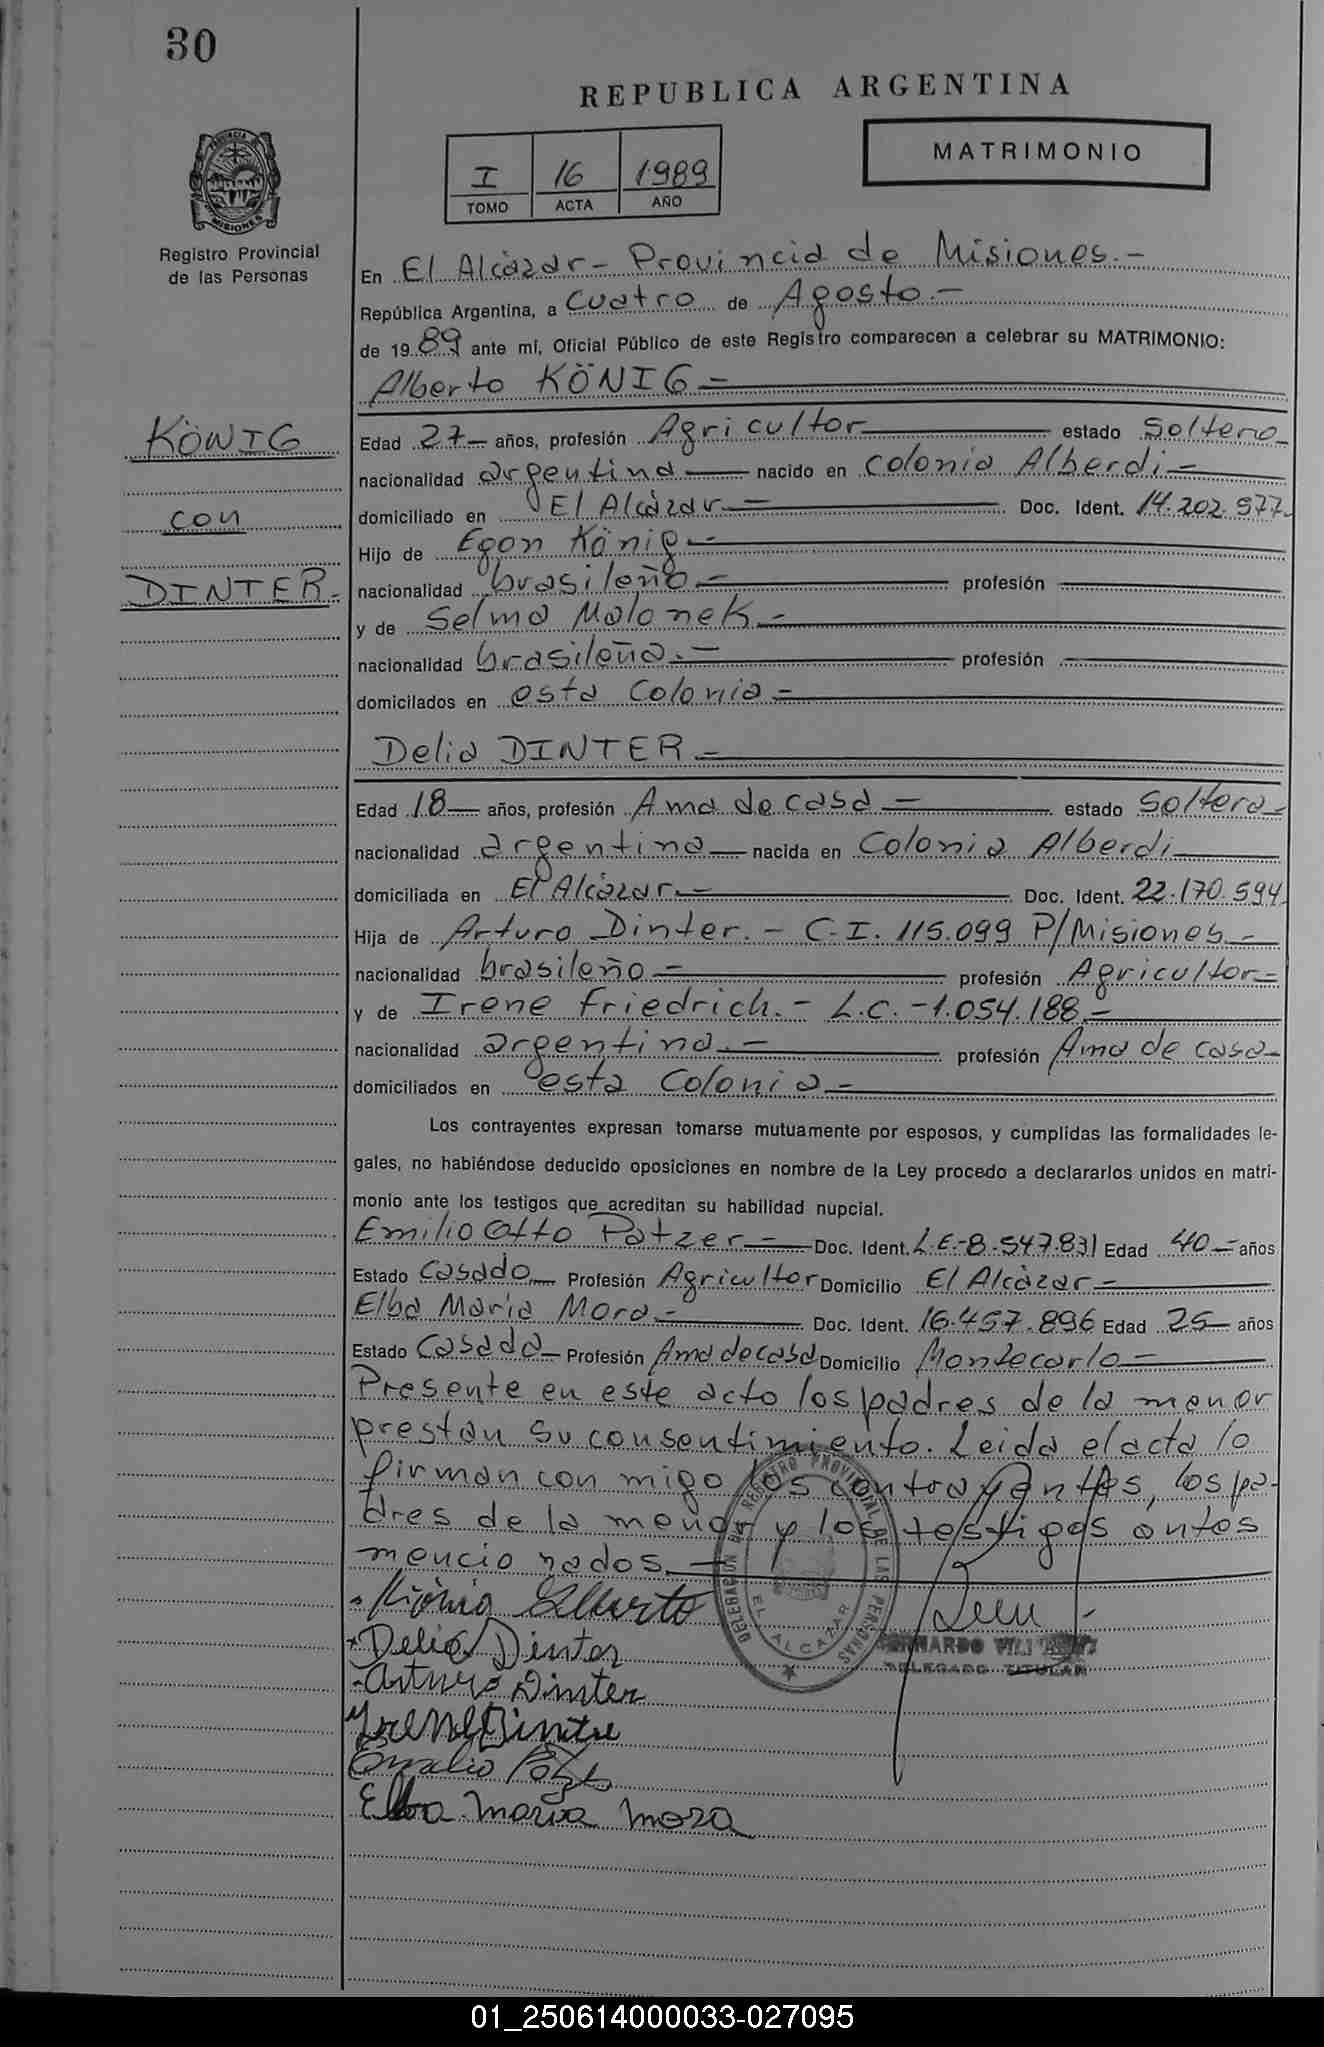 30
REPUBLICA ARGENTINA
MATRIMONIO
I 16 1989
TOMO ACTA AÑO
PROVINCIA DE MISIONES
Registro Provincial
de las Personas
En El Alcázar - Provincia de Misiones.-
República Argentina, a Cuatro de Agosto.-
de 1989 ante mí, Oficial Público de este Registro comparecen a celebrar su MATRIMONIO:
Alberto KÖNIG -
KÖNIG
con
DINTER.-
Edad 27 años, profesión Agricultor estado Soltero
nacionalidad argentina nacido en Colonia Alberdi -
domiciliado en El Alcázar.- Doc. Ident. 14.202.577.
Hijo de Egon König.-
nacionalidad brasileño.- profesión
y de Selma Malonek.-
nacionalidad brasileña.- profesión
domicilados en esta Colonia -
Delia DINTER -
Edad 18 años, profesión Ama de casa - estado Soltera -
nacionalidad argentina nacida en Colonia Alberdi
domiciliada en El Alcázar.- Doc. Ident. 22.170.594.
Hija de Arturo Dinter.- C.I. 115.099 P/Misiones.-
nacionalidad brasileño - profesión Agricultor -
y de Irene Friedrich.- L.C.-1.054.188.-
nacionalidad argentina.- profesión Ama de casa -
domiciliados en esta Colonia -
Los contrayentes expresan tomarse mutuamente por esposos, y cumplidas las formalidades le-
gales, no habiéndose deducido oposiciones en nombre de la Ley procedo a declararlos unidos en matri-
monio ante los testigos que acreditan su habilidad nupcial.
Emilio Otto Patzer - Doc. Ident. L.E.-8.547.831 Edad 40 - años
Estado Casado Profesión Agricultor Domicilio El Alcázar -
Elba María Mora - Doc. Ident. 16.457.896 Edad 25 años
Estado Casada Profesión Ama de casa Domicilio Montecarlo -
Presente en este acto los padres de la menor
prestan su consentimiento. Leida el acta lo
firman con migo los contrayentes, los pa-
dres de la menor y los testigos antes
mencionados.-
DELEGACION DEL REGISTRO PROVINCIAL DE LAS PERSONAS
EL ALCAZAR
Alberto
Delia Dinter
DELEGADO TITULAR
Arturo Dinter
Elba Maria Mora
01_250614000033-027095